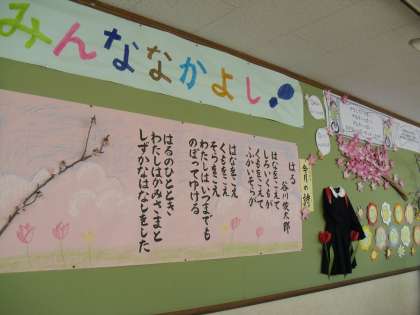 みんななかよし!
今月の詩
はる 谷川俊太郎
はなをこえて
しろいくもが
くもをこえて
ふかいそらが
はなをこえ
くもをこえ
そらをこえ
わたしはいつまでも
のぼってゆける
はるのひととき
わたしはかみさまと
しずかなはなしをした